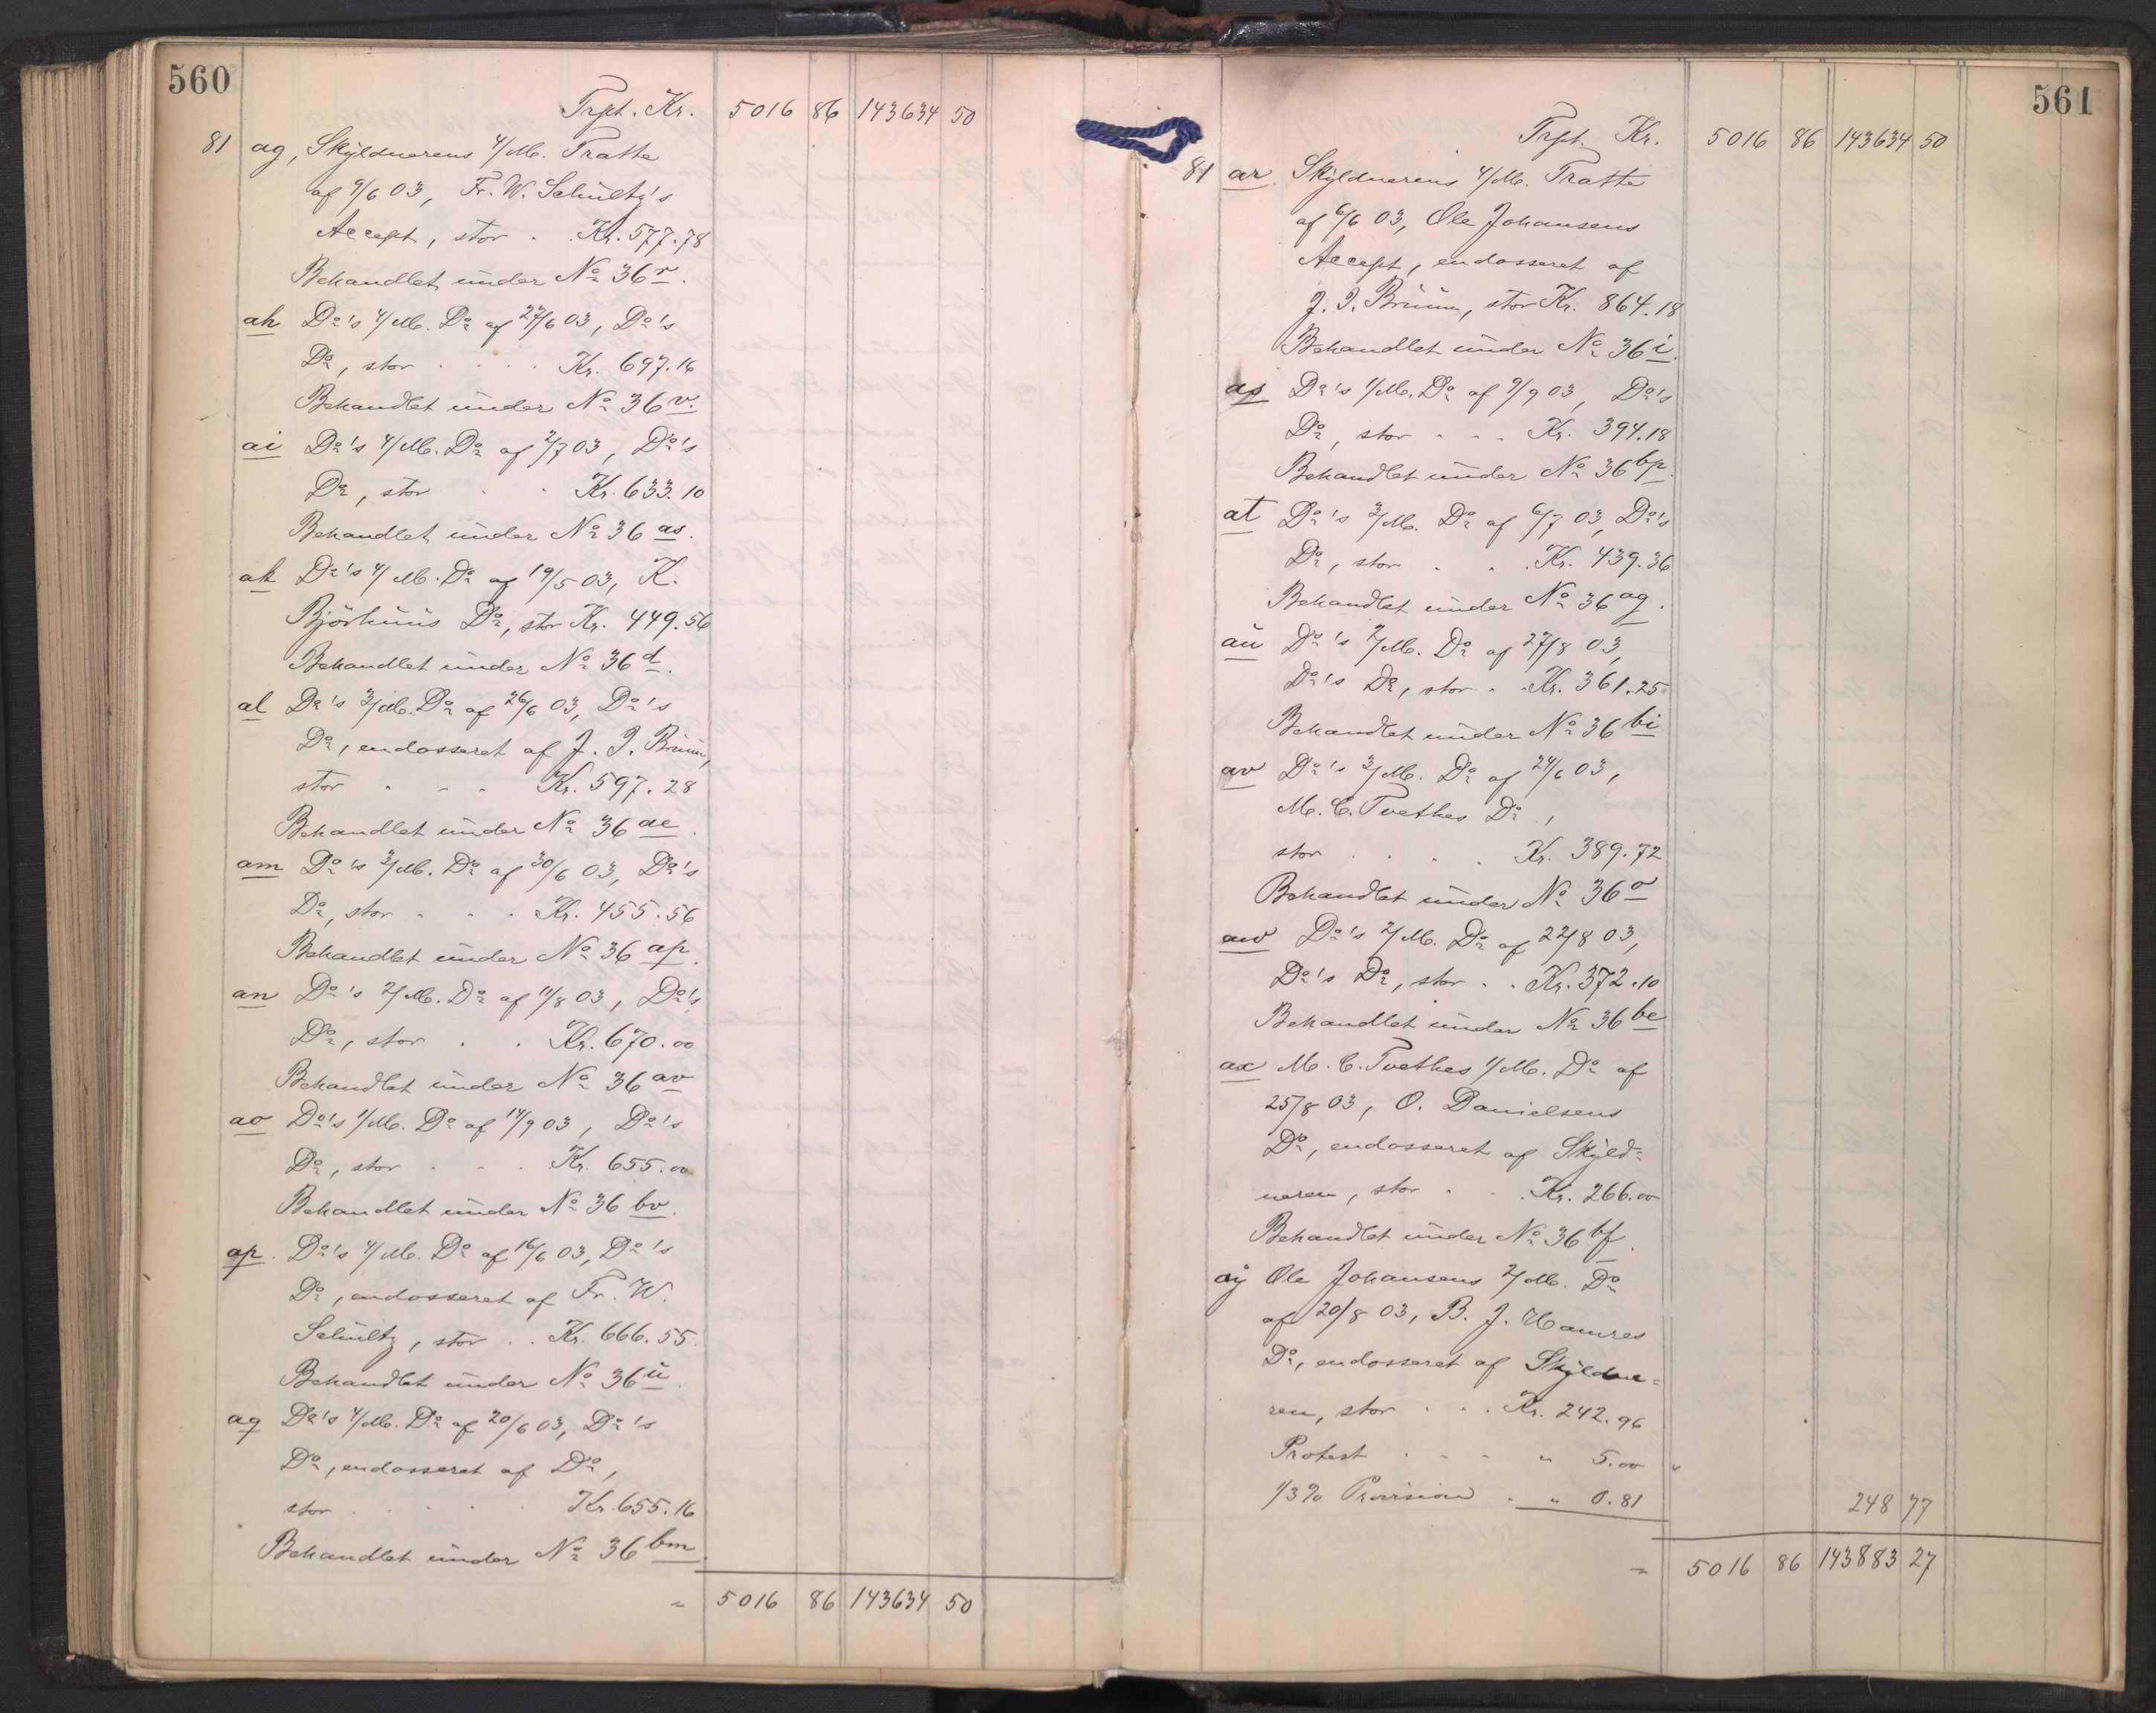 560
Trpt. Kr. 5016 86 143634 50
81 ag, Skyldnerens 4/M. Tratte
af 9/6 03, Fr. W. Schültz's
Accept, stor . Kr. 577.78
Behandlet under No 36 r.
ah Do's 4/M. Do af 27/6 03, Do's
Do, stor . . . . Kr. 697.16
Behandlet under No 36 v.
ai Do's 4/M. Do af 2/7 03, Do's
Do, stor . . Kr. 633.10
Behandlet under No 36 as.
ak Do's 4/M. Do af 19/5 03, K.
Björhüüs Do, stor Kr. 449.56
Behandlet under No 36 d.
al Do's 3/M. Do af 26/6 03, Do's
Do, endosseret af J. J. Brüün,
stor . . . Kr. 597.28
Behandlet under No 36 ae.
am Do's 3/M. Do af 30/6 03, Do's
Do, stor . . . Kr. 455.56
Behandlet under No 36 ap.
an Do's 2/M. Do af 11/8 03, Do's
Do, stor . . Kr. 670.00
Behandlet under No 36 av
ao Do's 1/M. Do af 14/9 03, Do's
Do, stor . . . Kr. 655.00
Behandlet under No 36 bv.
ap. Do's 4/M. Do af 16/6 03, Do's
Do, endosseret af Fr. W.
Schültz, stor . . Kr. 666.55
Behandlet under No 36 ü.
aq Do's 4/M. Do af 20/6 03, Do's
Do, endosseret af Do,
stor . . . . . Kr. 655.16
Behandlet under No 36 bm.
5016 86 143634 50
561
Trpt. Kr. 5016 86 143634 50
81 ar Skyldnerens 4/M. Tratte
af 6/6 03, Ole Johansens
Accept, endosseret af
J. J. Brüün, stor Kr. 864.18
Behandlet under No 36 i.
as Do's 1/M. Do af 9/9 03, Do's
Do, stor . . . Kr. 394.18
Behandlet under No 36 bp.
at Do's 3/M. Do af 6/7 03, Do's
Do, stor . . . Kr. 439.36
Behandlet under No 36 ag.
aü Do's 2/M. Do af 27/8 03,
Do's Do, stor . . Kr. 361.25
Behandlet under No 36 bi
av Do's 3/M. Do af 24/6 03,
M. C. Tvethes Do,
stor . . . . Kr. 389.72
Behandlet under No 36 o
aw Do's 2/M. Do af 22/8 03,
Do's Do, stor . . Kr. 372.10
Behandlet under No 36 be
ax M. C. Tvethes 1/M. Do af
25/8 03, O. Danielsens
Do, endosseret af Skyld=
neren, stor . . . Kr. 266.00
Behandlet under No 36 bf.
aÿ Ole Johansens 2/M. Do
af 20/8 03, B. J. Hamres
Do, endosseret af Skyldne=
ren, stor . . . Kr. 242.96
Protest . . . . " 5.00
1/3 % Provision . " 0.81 248 77
5016 86 143883 27